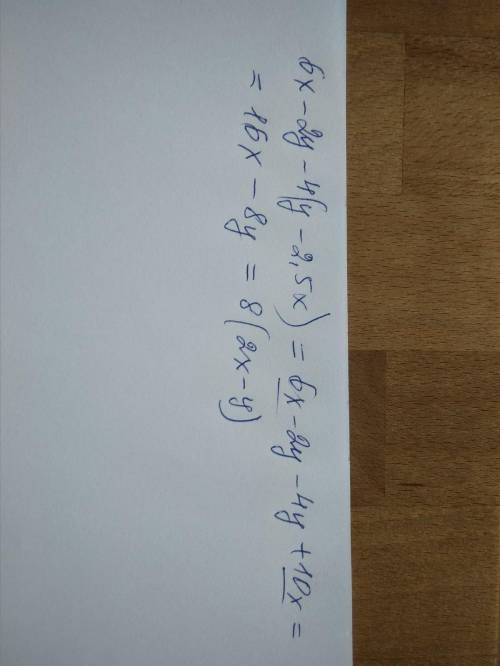 6x - 2y - 4(y - 2,5x) = 6x - 2y - 4y + 10x =
= 16x - 8y = 8(2x - y)